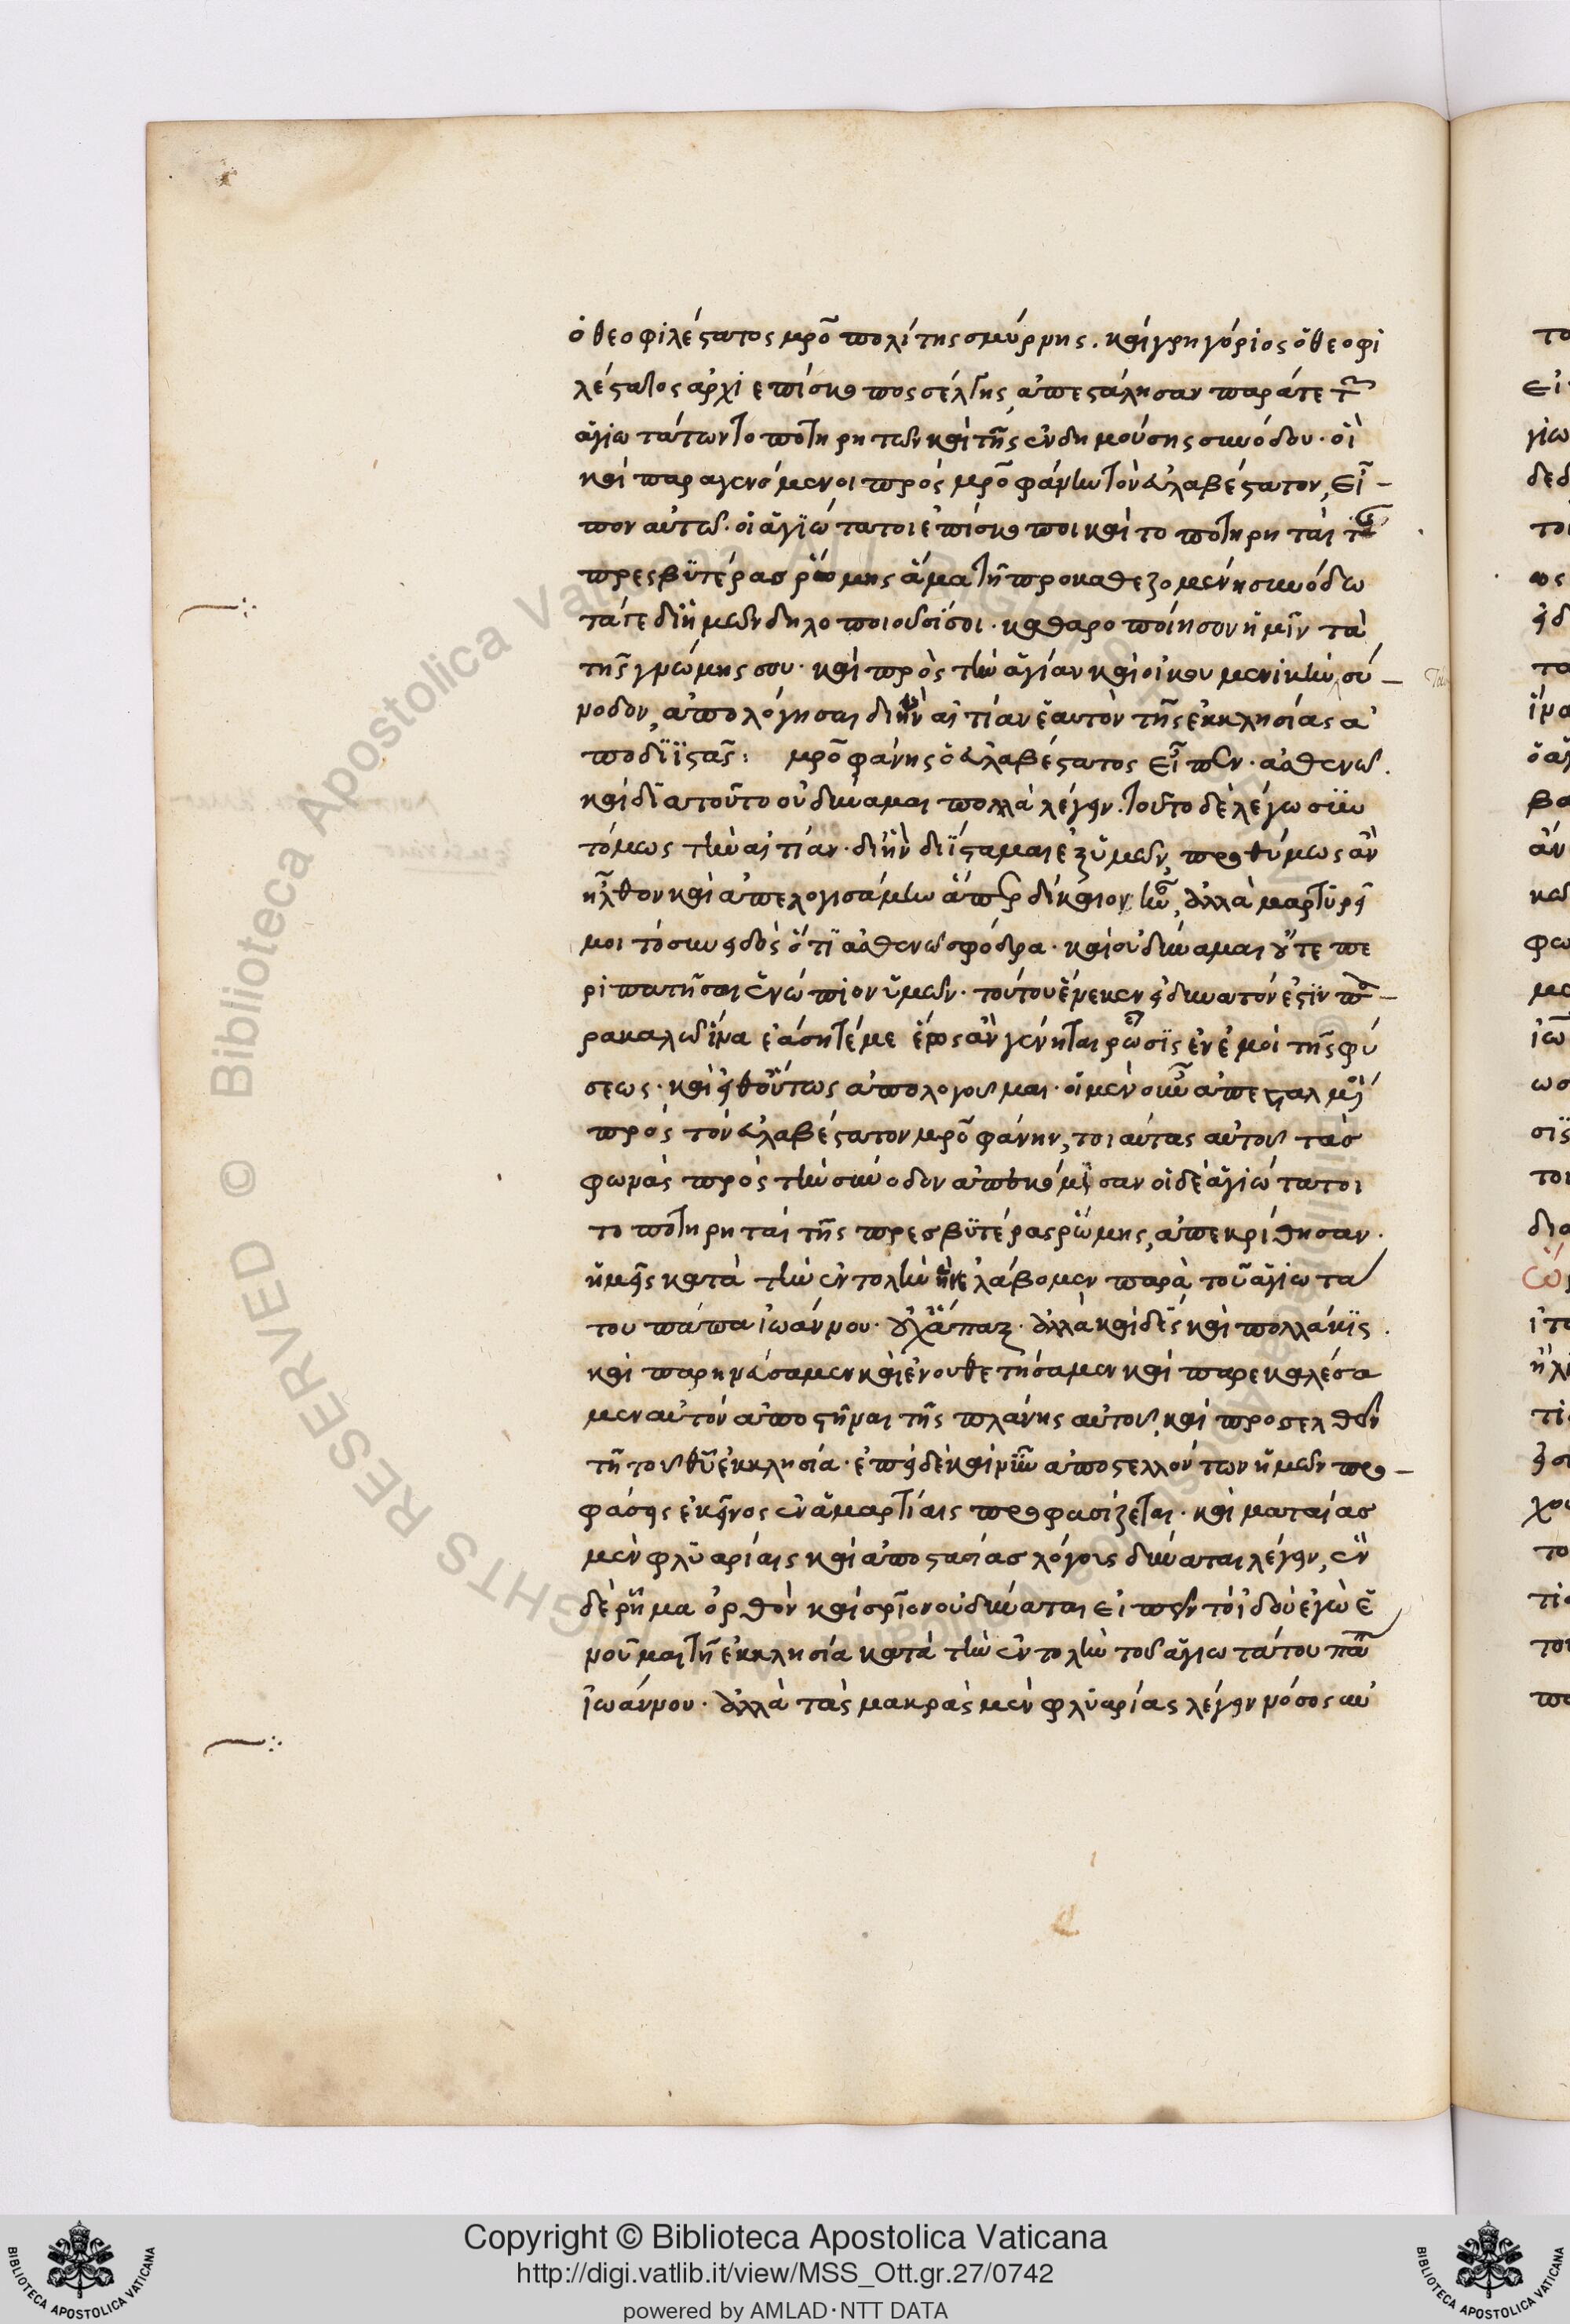 ὁ θεοφιλέστατος μητροπολίτης σμύρνης. καὶ γρηγόριος ὁ θεοφι
λέστατος ἀρχιεπίσκοπος σέλγης, ἀπεστάλησαν παρά τε τῶν
ἁγιωτάτων τοποτηρητῶν καὶ τῆς ἐνδημούσης συνόδου. οἳ
καὶ παραγενόμενοι πρὸς μητροφάνην τὸν εὐλαβέστατον, εἶ-
πον αὐτῶ. οἱ ἁγιώτατοι ἐπίσκοποι καὶ τοποτηρηταὶ τῆς
πρεσβυτέρας ῥώμης ἅμα τῆ προκαθεζομένη συνόδω
τάτε δι' ἡμῶν δηλοποιοῦσί σοι. καθαροποίησον ἡμῖν τὰ
τῆς γνώμης σου. καὶ πρὸς τὴν ἁγίαν καὶ οἰκουμενικὴν σύ-
νοδον, ἀπολόγησαι δι' ἣν αἰτίαν ἑαυτὸν τῆς ἐκκλησίας ἀ
ποδιϊστᾶς: μητροφάνης ὁ εὐλαβέστατος εἶπεν. ἀσθενῶ.
καὶ διὰ τοῦτο οὐ δύναμαι πολλὰ λέγειν. τοῦτο δὲ λέγω συν
τόμως τὴν αἰτίαν. δι' ἣν διΐσταμαι ἐξ ὑμῶν, προθύμως ἂν
ἦλθον καὶ ἀπελογισάμην ἅπερ δίκαιον ἦν, ἀλλὰ μαρτυρεῖ
μοι τὸ συνειδὸς ὅτι ἀσθενῶ σφόδρα. καὶ οὐ δύναμαι οὔτε πε
ριπατῆσαι ἐνώπιον ὑμῶν. τούτου ἕνεκεν εἰ δυνατόν ἐστιν πα-
ρακαλῶ ἵνα ἐάσητέ με ἕως ἂν γένηται ῥῶσις ἐν ἐμοὶ τῆς φύ
σεως. καὶ εἶθ' οὕτως ἀπολογοῦμαι. οἱ μὲν οὖν ἀπεσταλμένοι
πρὸς τὸν εὐλαβέστατον μητροφάνην, τοιαύτας αὐτοῦ τὰς
φωνὰς πρὸς τὴν σύνοδον ἀπεκόμισαν οἱ δὲ ἁγιώτατοι
τοποτηρηταὶ τῆς πρεσβυτέρας ῥώμης, ἀπεκρίθησαν.
ἡμεῖς κατὰ τὴν ἐντολὴν ἣν ἐλάβομεν παρὰ τοῦ ἁγιωτά
του πάπα ἰωάννου. οὐχ ἅπαξ. ἀλλὰ καὶ δὶς καὶ πολλάκις.
καὶ παρηνέσαμεν καὶ ἐνουθετήσαμεν καὶ παρεκαλέσα
μεν αὐτὸν ἀποστῆναι τῆς πλάνης αὐτοῦ, καὶ προσελθεῖν
τῆ τοῦ θυ ἐκκλησία. ἐπεὶ δὲ καὶ νῦν ἀποστελλόντων ἡμῶν προ-
φάσεις ἐκεῖνος ἐν ἁμαρτίαις προφασίζεται. καὶ ματαίας
μὲν φλυαρίαις καὶ ἀποστασίας λόγους δύναται λέγειν, ἓν
δὲ ῥῆμα ὀρθὸν καὶ σριον οὐ δύναται εἰπεῖν τὸ ἰδοὺ ἐγὼ ἑ
νοῦμαι τῆ ἐκκλησία κατὰ τὴν ἐντολὴν τοῦ ἁγιωτάτου πάπα
ἰωάννου. ἀλλὰ τὰς μακρὰς μὲν φλυαρίας λέγειν νόσος αὐ
Copyright © Biblioteca Apostolica Vaticana
http://digi.vatlib.it/view/MSS_Ott.gr.27/0742
powered by AMLAD·NTT DATA